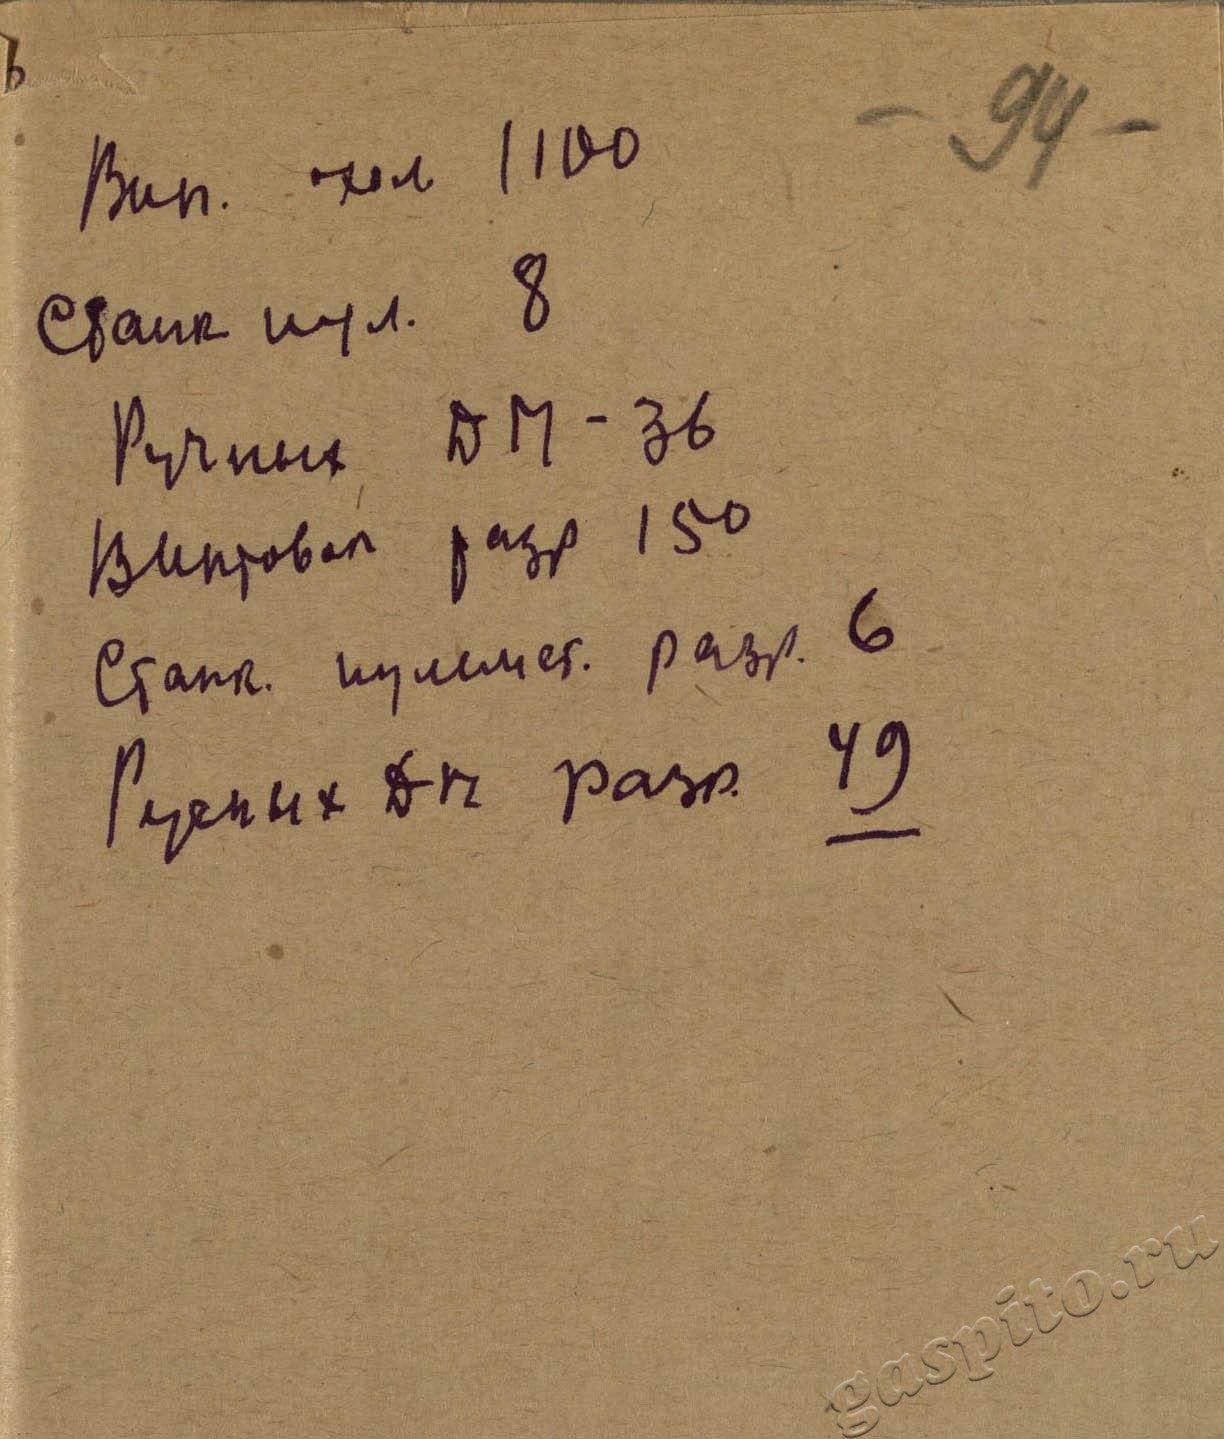 - 94 -
Вин. охол 1100
Станк пул. 8
Ручных ДП - 36
Винтовок разр 150
Станк. пулемет. разр. 6
Ручных ДП разр. 49
gaspito.ru